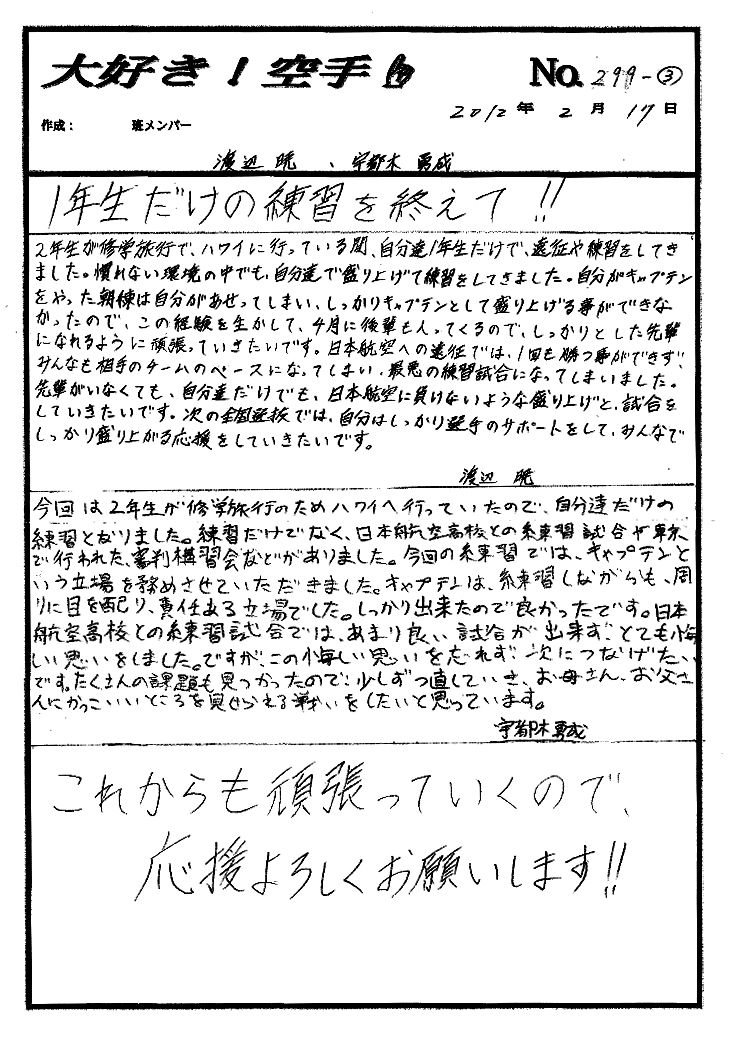 大好き！空手
No. 299-③
2012年 2月 17日
作成： 班メンバー
渡辺 暁 、宇都木 勇成
1年生だけの練習を終えて!!
2年生が修学旅行で、ハワイに行っている間、自分達1年生だけで、遠征や練習をしてき
ました。慣れない環境の中でも、自分達で盛り上げて練習をしてきました。自分がキャプテン
をやった朝練は自分があせってしまい、しっかりキャプテンとして盛り上げる事ができな
かったので、この経験を生かして、4月に後輩も入ってくるので、しっかりとした先輩
になれるように頑張っていきたいです。日本航空への遠征では、1回も勝つ事ができず、
みんなも相手のチームのペースになってしまい、最悪の練習試合になってしまいました。
先輩がいなくても、自分達だけでも、日本航空に負けないような盛り上げと、試合を
していきたいです。次の全国選抜では、自分はしっかり選手のサポートをして、みんなで
しっかり盛り上がる応援をしていきたいです。
渡辺 暁
今回は2年生が修学旅行のためハワイへ行っていたので、自分達だけの
練習となりました。練習だけでなく、日本航空高校との練習試合や東京
で行われた、審判構習会などがありました。今回の練習では、キャプテンと
いう立場を務めさせていただきました。キャプテンは、練習しながらも、周
りに目を配り、責任ある立場でした。しっかり出来たので良かったです。日本
航空高校との練習試合では、あまり良い試合が出来ず、とても悔
しい思いをしました。ですが、この悔しい思いを忘れず、次につなげたい
です。たくさんの課題も見つかったので、少しずつ直していき、お母さん、お父さ
んにかっこいいところを見せられる戦いをしたいと思っています。
宇都木勇成
これからも頑張っていくので、
応援よろしくお願いします!!